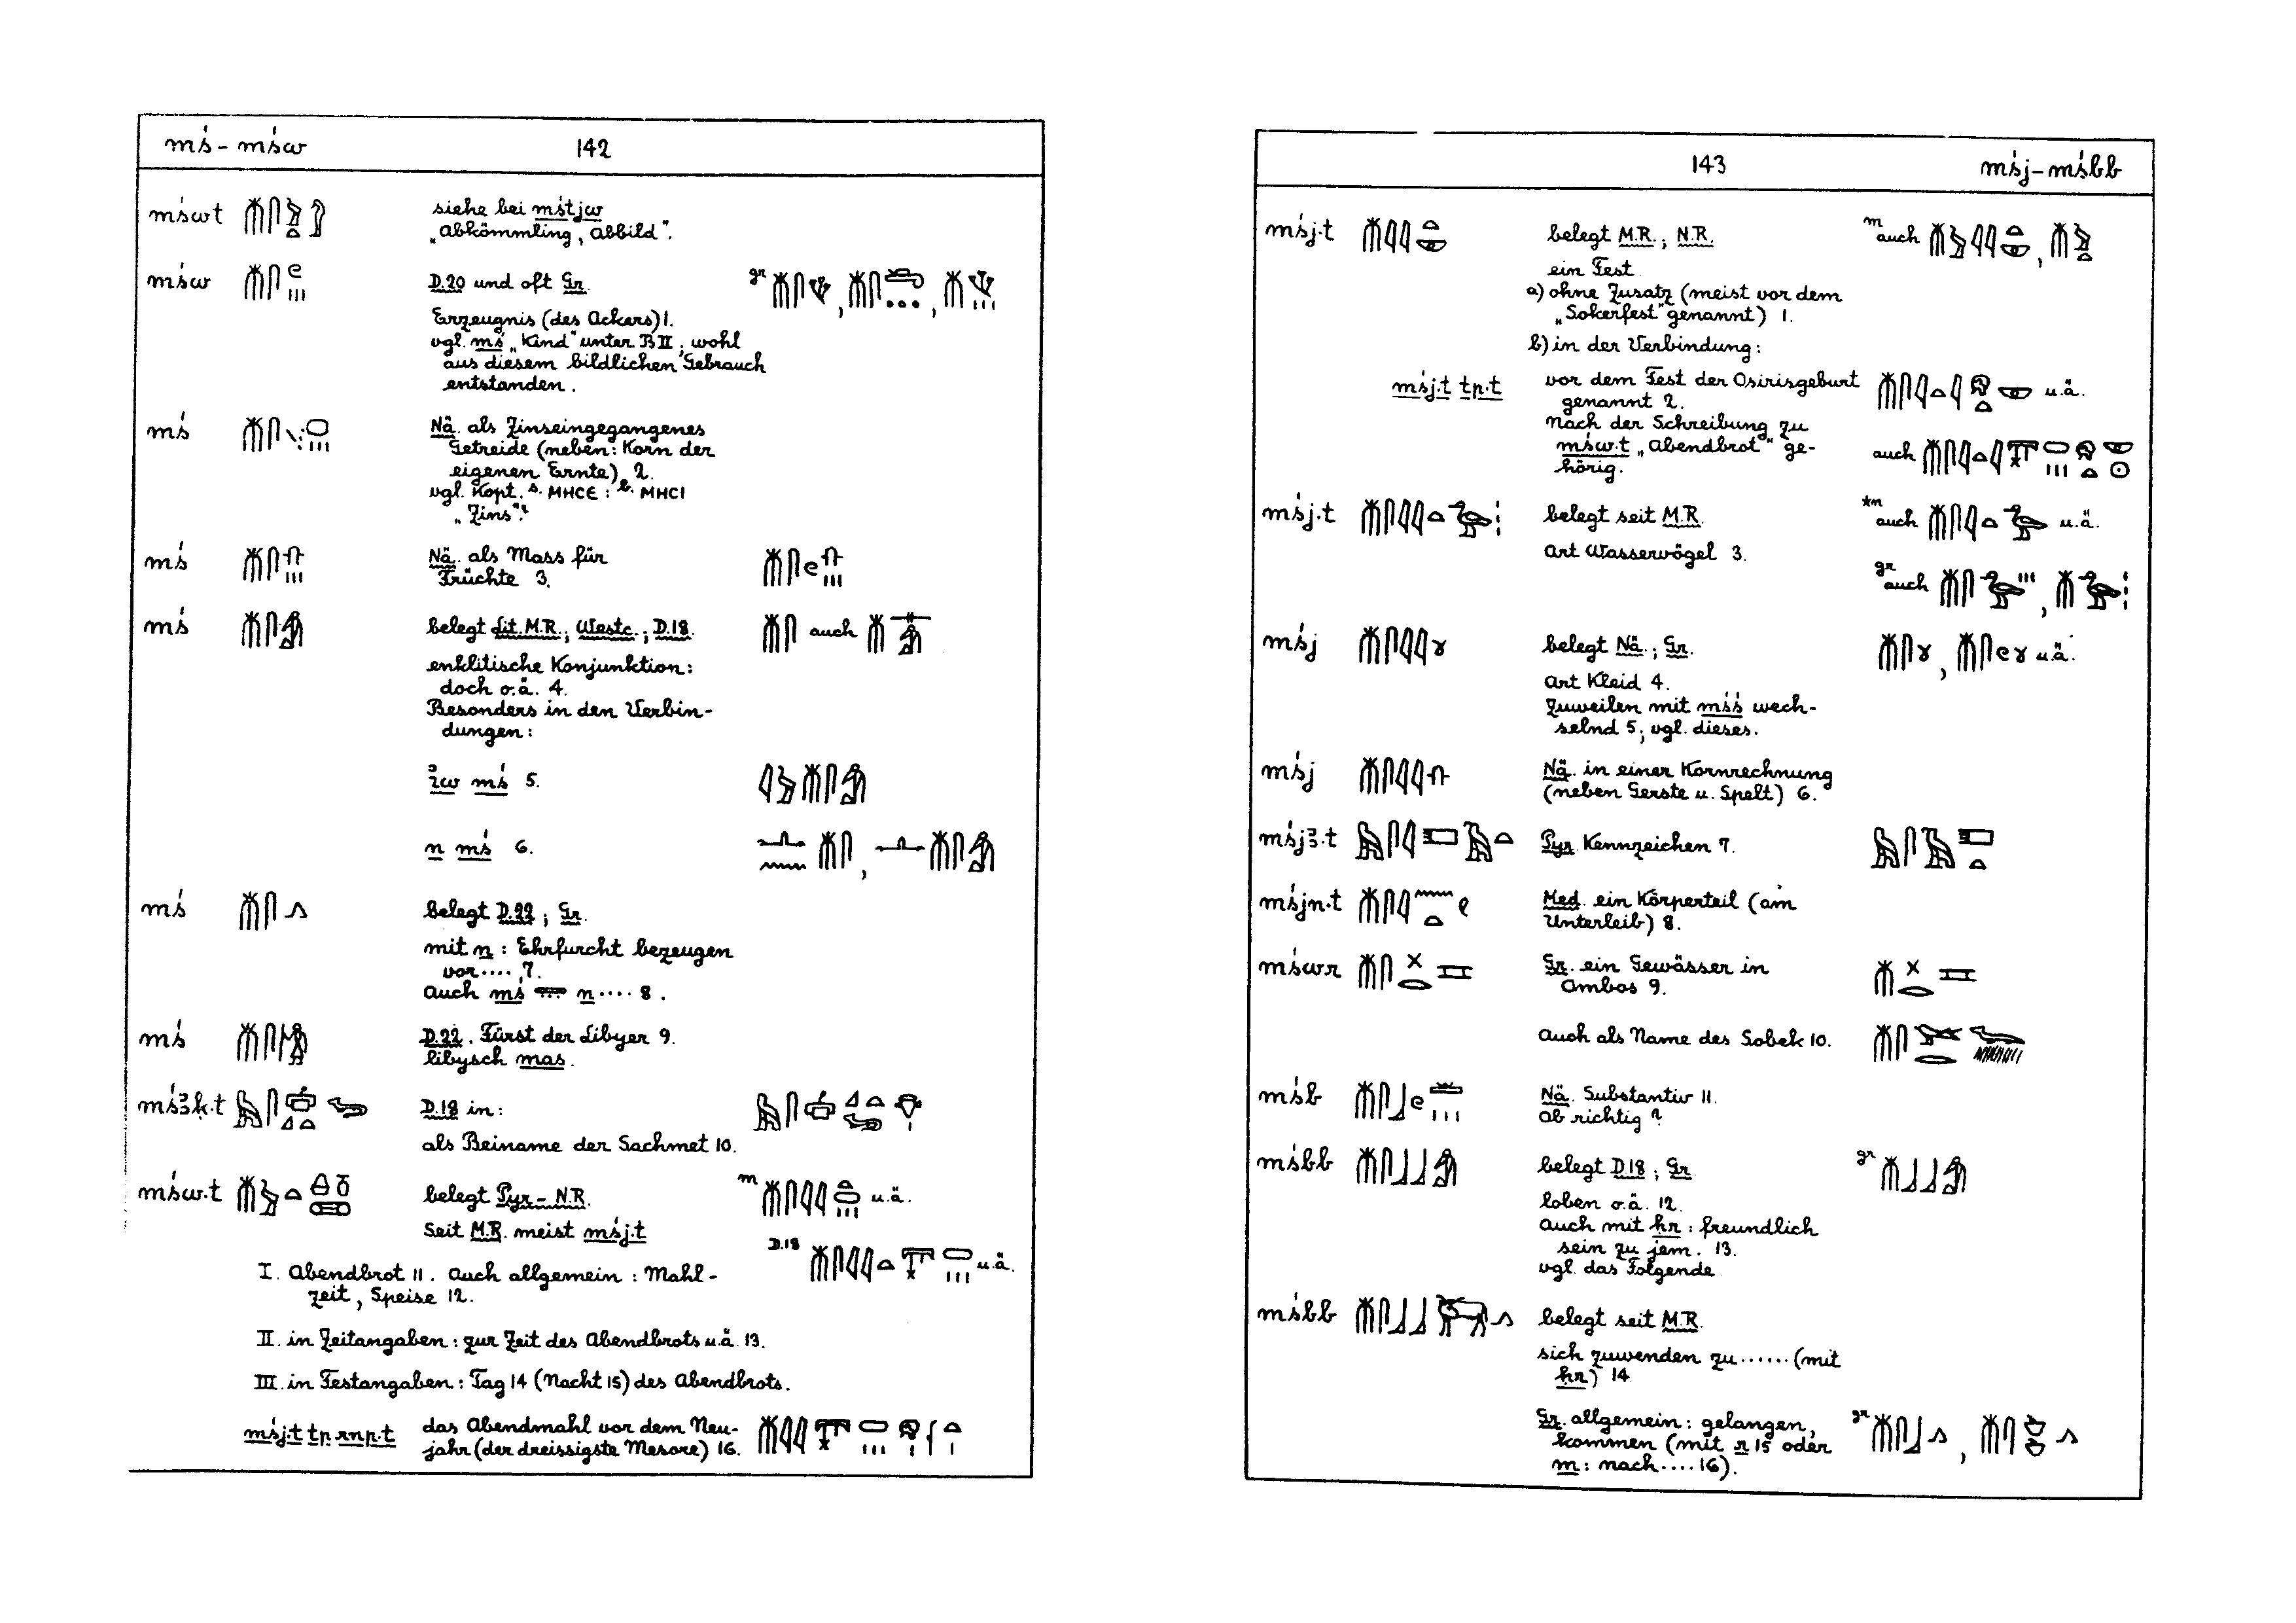 mś - mśw 142
mśwt siehe bei mśtjw
„Abkömmling, Abbild".
mśw D.20 und oft Gr. gr
Erzeugnis (des Ackers) 1.
vgl. mś „Kind" unter B II; wohl
aus diesem bildlichen Gebrauch
entstanden.
mś Nä. als Zinseingegangenes
Getreide (neben: Korn der
eigenen Ernte) 2.
vgl. Kopt. S. ⲘⲎⲤⲈ : B. ⲘⲎⲤⲒ
„Zins"?
mś Nä. als Mass für
Früchte 3.
mś belegt Lit. M.R.; Westc.; D.18. auch
enklitische Konjunktion:
doch o.ä. 4.
Besonders in den Verbin-
dungen:
ỉw mś 5.
n mś 6.
mś belegt D.22; Gr.
mit n : Ehrfurcht bezeugen
vor .... 7.
auch mś n .... 8.
mś D.22. Fürst der Libyer 9.
libysch mas.
mśꜣk.t D.18 in:
als Beiname der Sachmet 10.
mśw.t belegt Pyr - N.R. m u.ä.
Seit M.R. meist mśj.t
D.18 u.ä.
I. Abendbrot 11. Auch allgemein : Mahl-
zeit, Speise 12.
II. in Zeitangaben : zur Zeit des Abendbrots u.ä. 13.
III. in Festangaben : Tag 14 (Nacht 15) des Abendbrots.
mśj.t tp rnp.t das Abendmahl vor dem Neu-
jahr (der dreissigste Mesore) 16.
143 mśj - mśbb
mśj.t belegt M.R.; N.R. m auch
ein Fest
a) ohne Zusatz (meist vor dem
„Sokerfest" genannt) 1.
b) in der Verbindung:
mśj.t tp.t vor dem Fest der Osirisgeburt u.ä.
genannt 2.
nach der Schreibung zu
mśw.t „Abendbrot" ge- auch
hörig.
mśj.t belegt seit M.R. *m auch u.ä.
Art Wasservögel 3.
gr auch
mśj belegt Nä.; Gr. u.ä.
Art Kleid 4.
Zuweilen mit mśś wech-
selnd 5; vgl. dieses.
mśj Nä. in einer Kornrechnung
(neben Gerste u. Spelt) 6.
mśjꜣ.t Pyr Kennzeichen 7.
mśjn.t Med. ein Körperteil (am
Unterleib) 8.
mśwr Gr. ein Gewässer in
Ombos 9.
auch als Name des Sobek 10.
mśb Nä. Substantiv 11.
ob richtig?
mśbb belegt D.18; Gr. gr
loben o.ä. 12.
auch mit ḥr : freundlich
sein zu jem. 13.
vgl. das Folgende
mśbb belegt seit M.R.
sich zuwenden zu ...... (mit
ḥr) 14
Gr. allgemein : gelangen, gr
kommen (mit r 15 oder
m : nach .... 16).